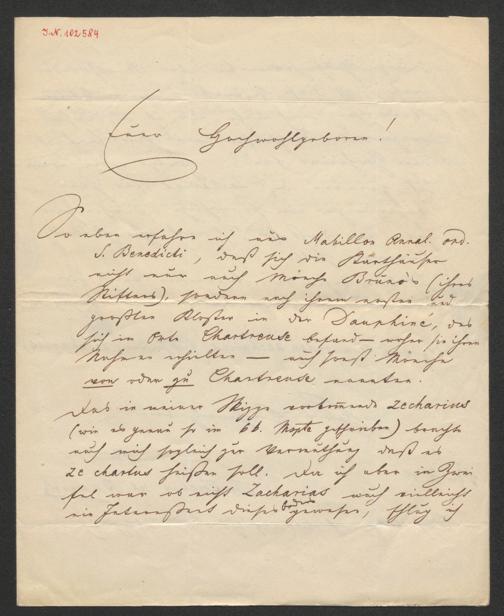 J. N. 102584
Euer Hochwohlgeboren!
So eben erfahre ich aus Mabillon Annal. ord.
S. Benedicti, daß sich die Karthäuser
nicht nur nach Mönche Bruno's (ihres
Stifters), sondern nach ihrem ersten und
großten Kloster in der Dauphiné, das
sich im Orte Chartreuse befand — woher sie ihren
Nahmen erhielten — auch sonst Mönche
von oder zu Chartreuse nannten.
Das in meiner Skizze vorkommende zecharius
(wie es genau so in bb. Mspte geschrieben) brachte
auch mich sogleich zur Vermuthung daß es
ze chartus heißen soll. Da ich aber in Zwei
fel war ob nicht Zacharias auch vielleicht
ein Interessent dieses Codex gewesen, schlug ich